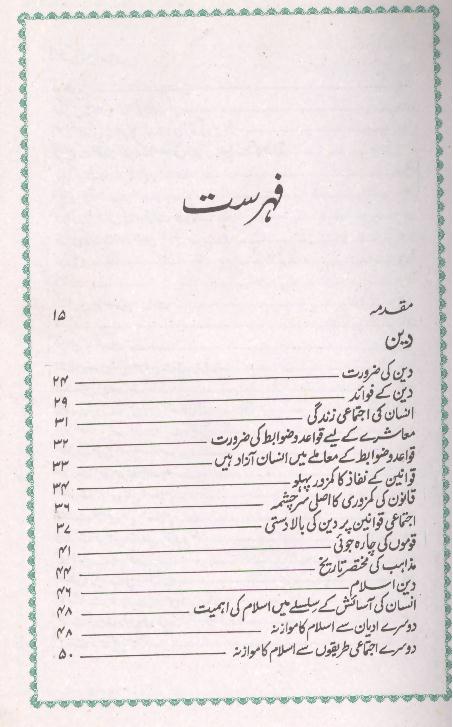 فہرست
مقدمہ ۱۵
دین
دین کی ضرورت ۲۴
دین کے فوائد ۲۹
انسان کی اجتماعی زندگی ۳۱
معاشرے کے لیے قواعد و ضوابط کی ضرورت ۳۲
قواعد و ضوابط کے معاملے میں انسان آزاد ہیں ۳۳
قوانین کے نفاذ کا کمزور پہلو ۳۴
قانون کی کمزوری کا اصلی سرچشمہ ۳۶
اجتماعی قوانین پر دین کی بالادستی ۳۷
قوموں کی چارہ جوئی ۴۱
مذاہب کی مختصر تاریخ ۴۴
دین اسلام ۴۶
انسان کی آسائش کے سلسلے میں اسلام کی اہمیت ۴۸
دوسرے ادیان سے اسلام کا موازنہ ۴۸
دوسرے اجتماعی طریقوں سے اسلام کا موازنہ ۵۰